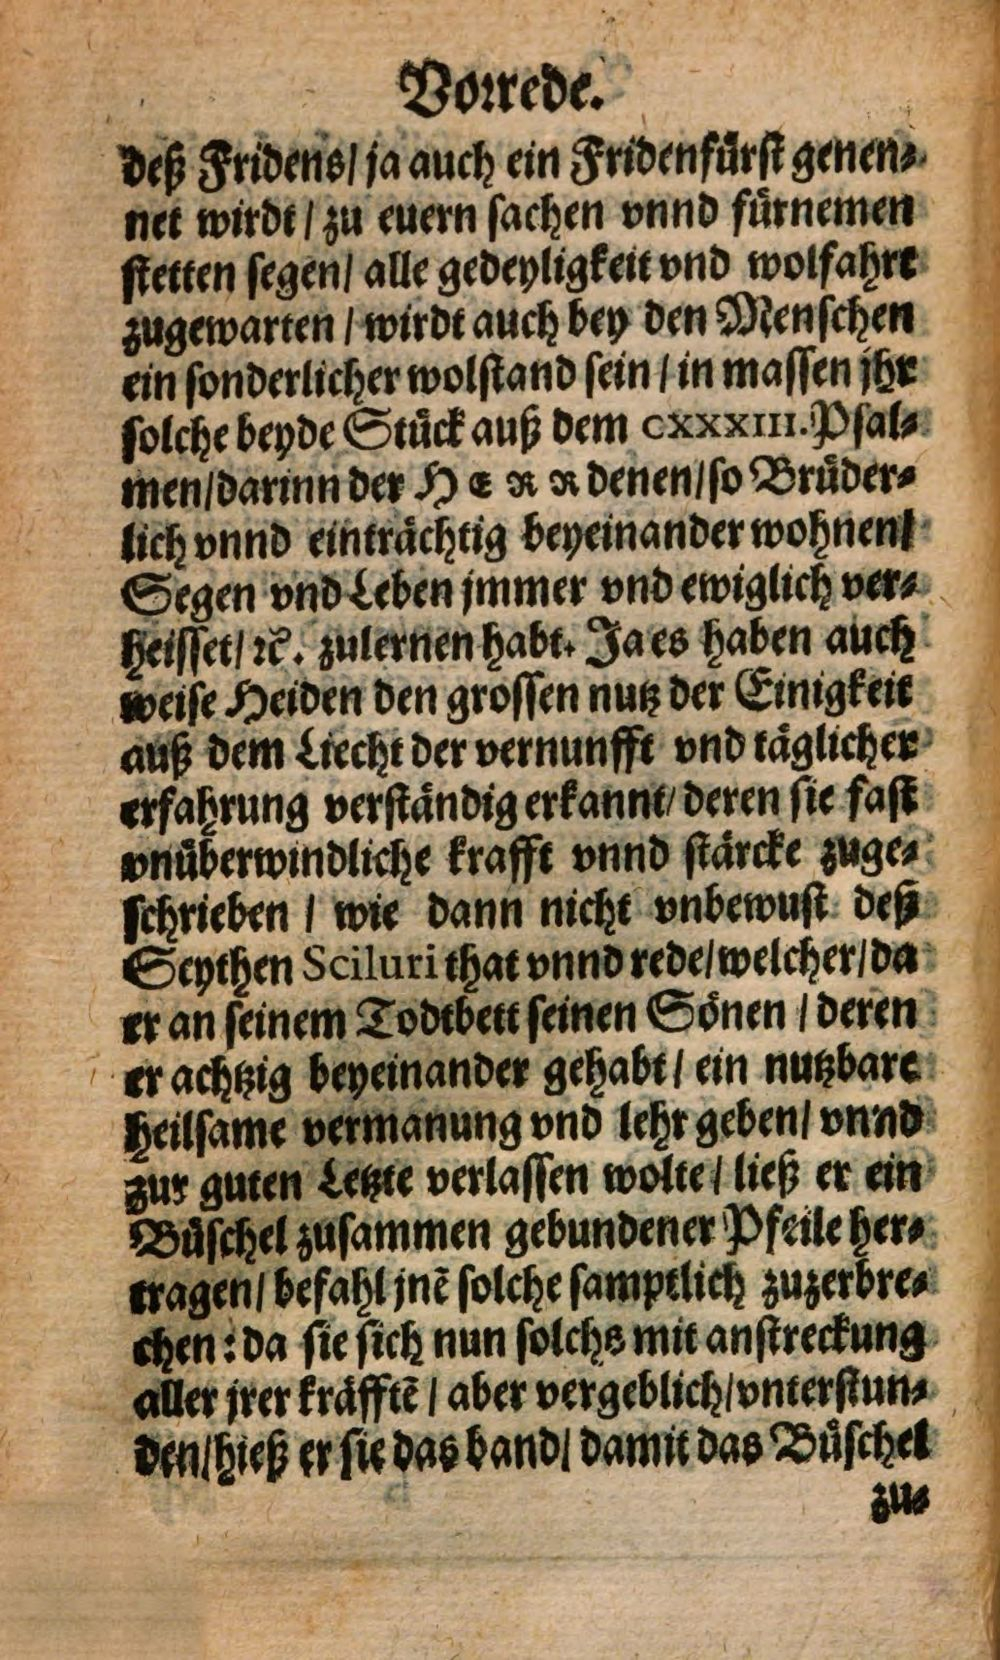 Vorrede.
deß Fridens/ ja auch ein Fridenfürst genen-
net wirdt / zu euern sachen vnnd fürnemen
stetten segen/ alle gedeyligkeit vnd wolfahrt
zugewarten / wirdt auch bey den Menschen
ein sonderlicher wolstand sein / in massen jhr
solche beyde Stück auß dem CXXXIII. Psal-
men/darinn der HERR denen/so Brüder-
lich vnnd einträchtig beyeinander wohnen/
Segen vnd Leben jmmer vnd ewiglich ver-
heisset/ ꝛc. zulernen habt. Ja es haben auch
weise Heiden den grossen nutz der Einigkeit
auß dem Liecht der vernunfft vnd täglicher
erfahrung verständig erkannt/ deren sie fast
vnüberwindliche krafft vnnd stärcke zuge-
schrieben / wie dann nicht vnbewust deß
Scythen Sciluri that vnnd rede/welcher/da
er an seinem Todtbett seinen Sönen / deren
er achtzig beyeinander gehabt / ein nutzbare
heilsame vermanung vnd lehr geben/ vnnd
zur guten Letzte verlassen wolte / ließ er ein
Büschel zusammen gebundener Pfeile her-
tragen/ befahl jnẽ solche samptlich zuzerbre-
chen: da sie sich nun solchs mit anstreckung
aller jrer kräfftẽ / aber vergeblich/vnterstun-
den/hieß er sie das band/ damit das Büschel
zu-